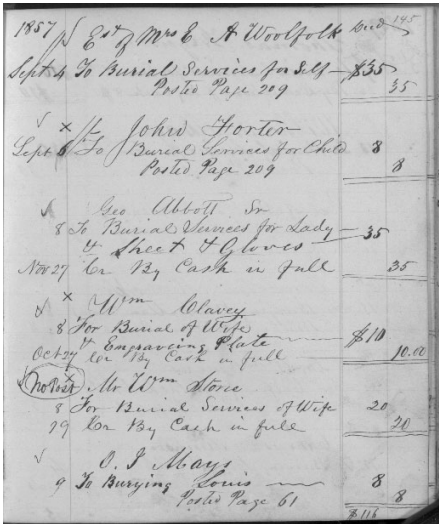 1857 Est of Mrs E A Woolfolk 145
Sept 4 To Burial Services for Self $35
Posted Page 209 35
✓ × John Forter
Sept 6 To Burial Services for Child 8
Posted Page 209 8
✓ Geo Abbott Sr
8 To Burial Services for Lady
& Sheet & Gloves 35
Nov 27 Cr By Cash in full 35
✓ × Wm Clavey
8 For Burial of Wife
& Engraveing Plate $10
Oct 27 Cr By Cash in full 10.00
✓ No Post Mr Wm Stone
8 For Burial Services of Wife 20
29 Cr By Cash in full 20
✓ O. J Mays
9 To Burying Louis 8
Posted Page 61 8
$116